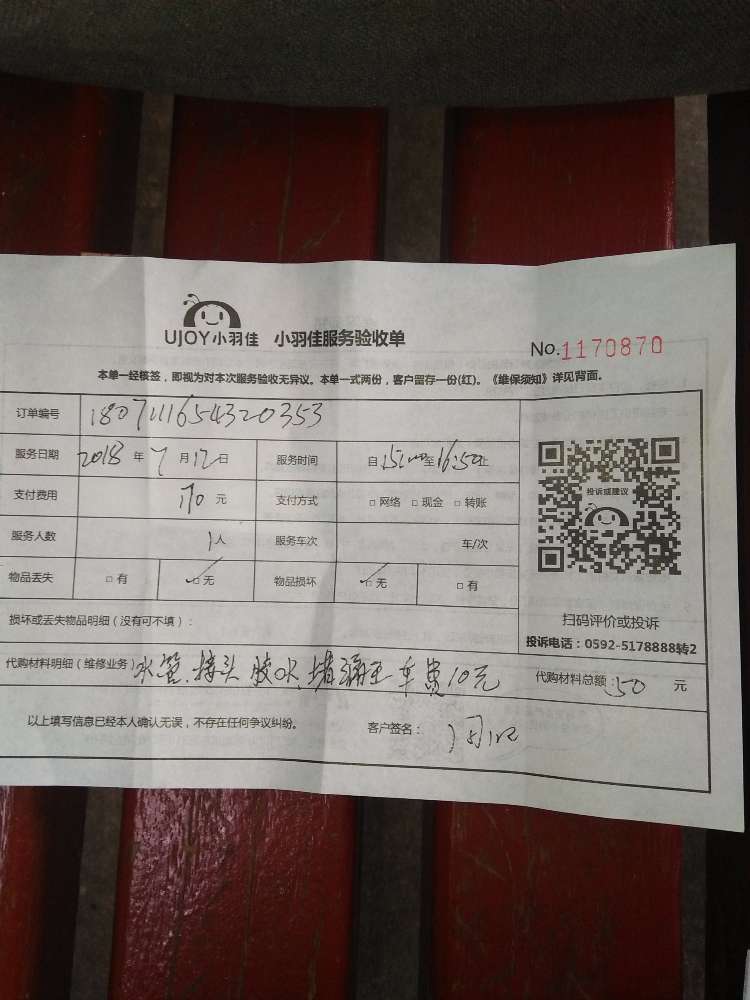 UJOY小羽佳 小羽佳服务验收单 No.1170870
本单一经核签，即视为对本次服务验收无异议。本单一式两份，客户留存一份(红)。《维保须知》详见背面。
订单编号 1807111654320353
服务日期 2018 年 7 月 12 日 服务时间 自 15:00 至 16:50 止
支付费用 170 元 支付方式 □ 网络 □ 现金 □ 转账
投诉或建议
服务人数 1 人 服务车次 车/次
物品丢失 □ 有 ✓□ 无 物品损坏 ✓□ 无 □ 有
扫码评价或投诉
损坏或丢失物品明细（没有可不填）：
投诉电话：0592-5178888转2
代购材料明细（维修业务）：水管、接头 胶水、堵漏王 车费10元 代购材料总额：50 元
以上填写信息已经本人确认无误，不存在任何争议纠纷。 客户签名：